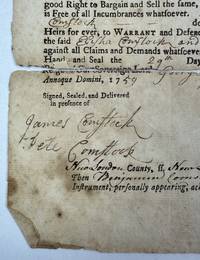 good Right to Bargain and Sell the same,
is Free of all Incumbrances whatsoever.
Comstock do
Heirs for ever, to WARRANT and Defend
the said Elisha Comstock and
against all Claims and Demands whatsoever
Hand and Seal the 29th Day
Reign Our Sovereign Lord Georg
Annoque Domini, 1749
Signed, Sealed, and Delivered
in presence of
James Comstock
Pete Comstock
New London County, ss. New
Then Benjamin Coms
Instrument, personally appearing, ac